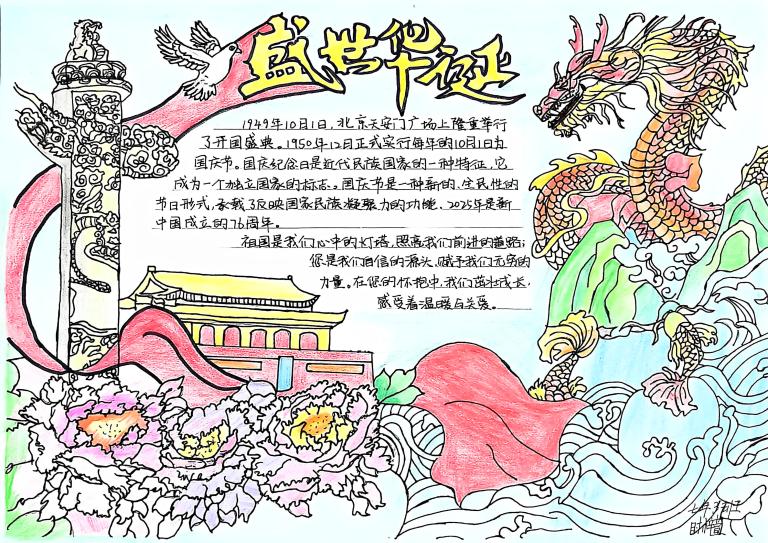 盛世华诞
1949年10月1日，北京天安门广场上隆重举行
了开国盛典。1950年12月正式实行每年的10月1日为
国庆节。国庆纪念日是近代民族国家的一种特征，它
成为一个独立国家的标志。国庆节是一种新的、全民性的
节日形式，承载了反映国家民族凝聚力的功能，2025年是新
中国成立的76周年。
祖国是我们心中的灯塔，照亮我们前进的道路；
您是我们自信的源头，赋予我们无穷的
力量。在您的怀抱中，我们茁壮成长，
感受着温暖与关爱。